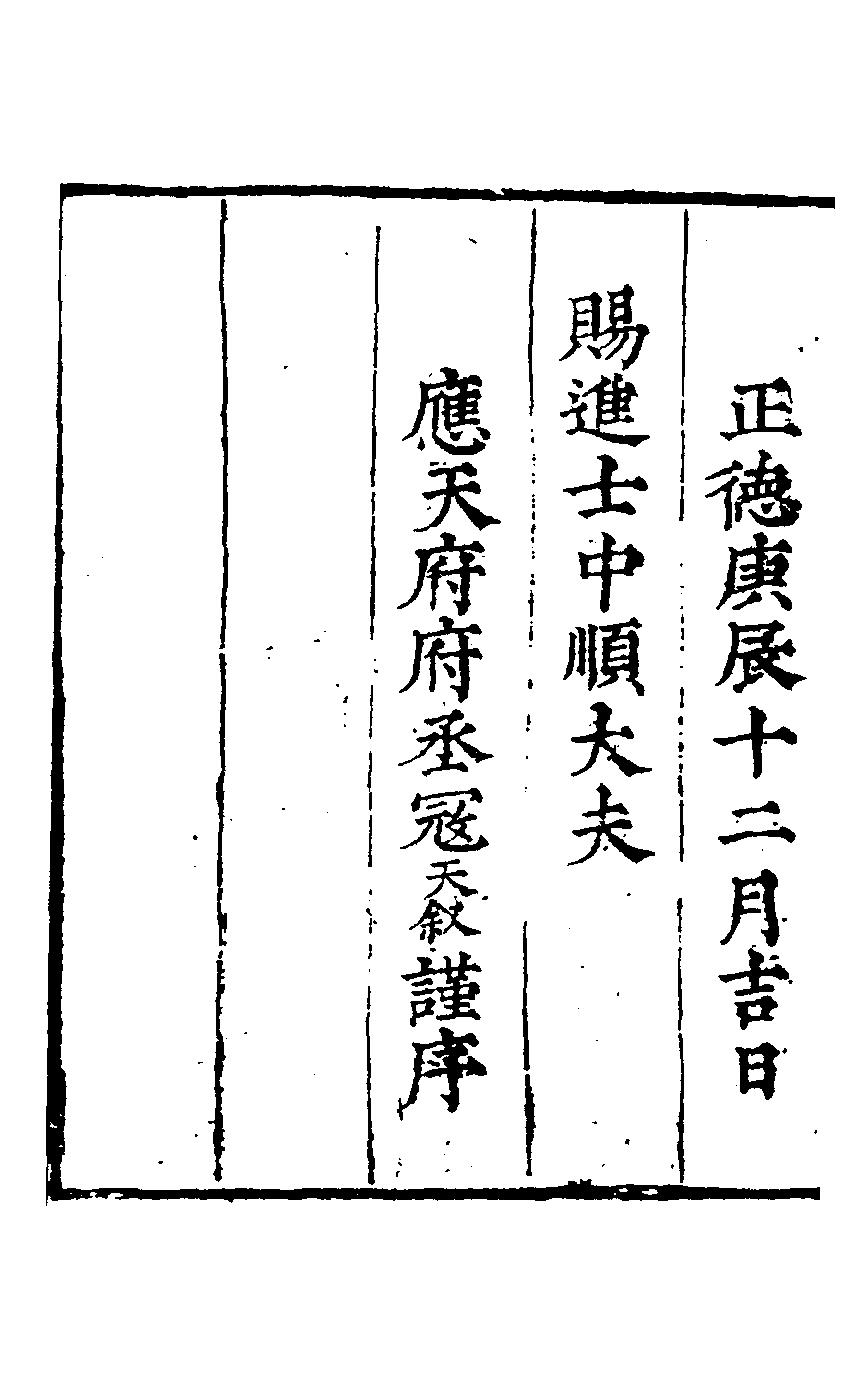 正德庚辰十二月吉日
賜進士中順大夫
應天府府丞冦天敘謹序